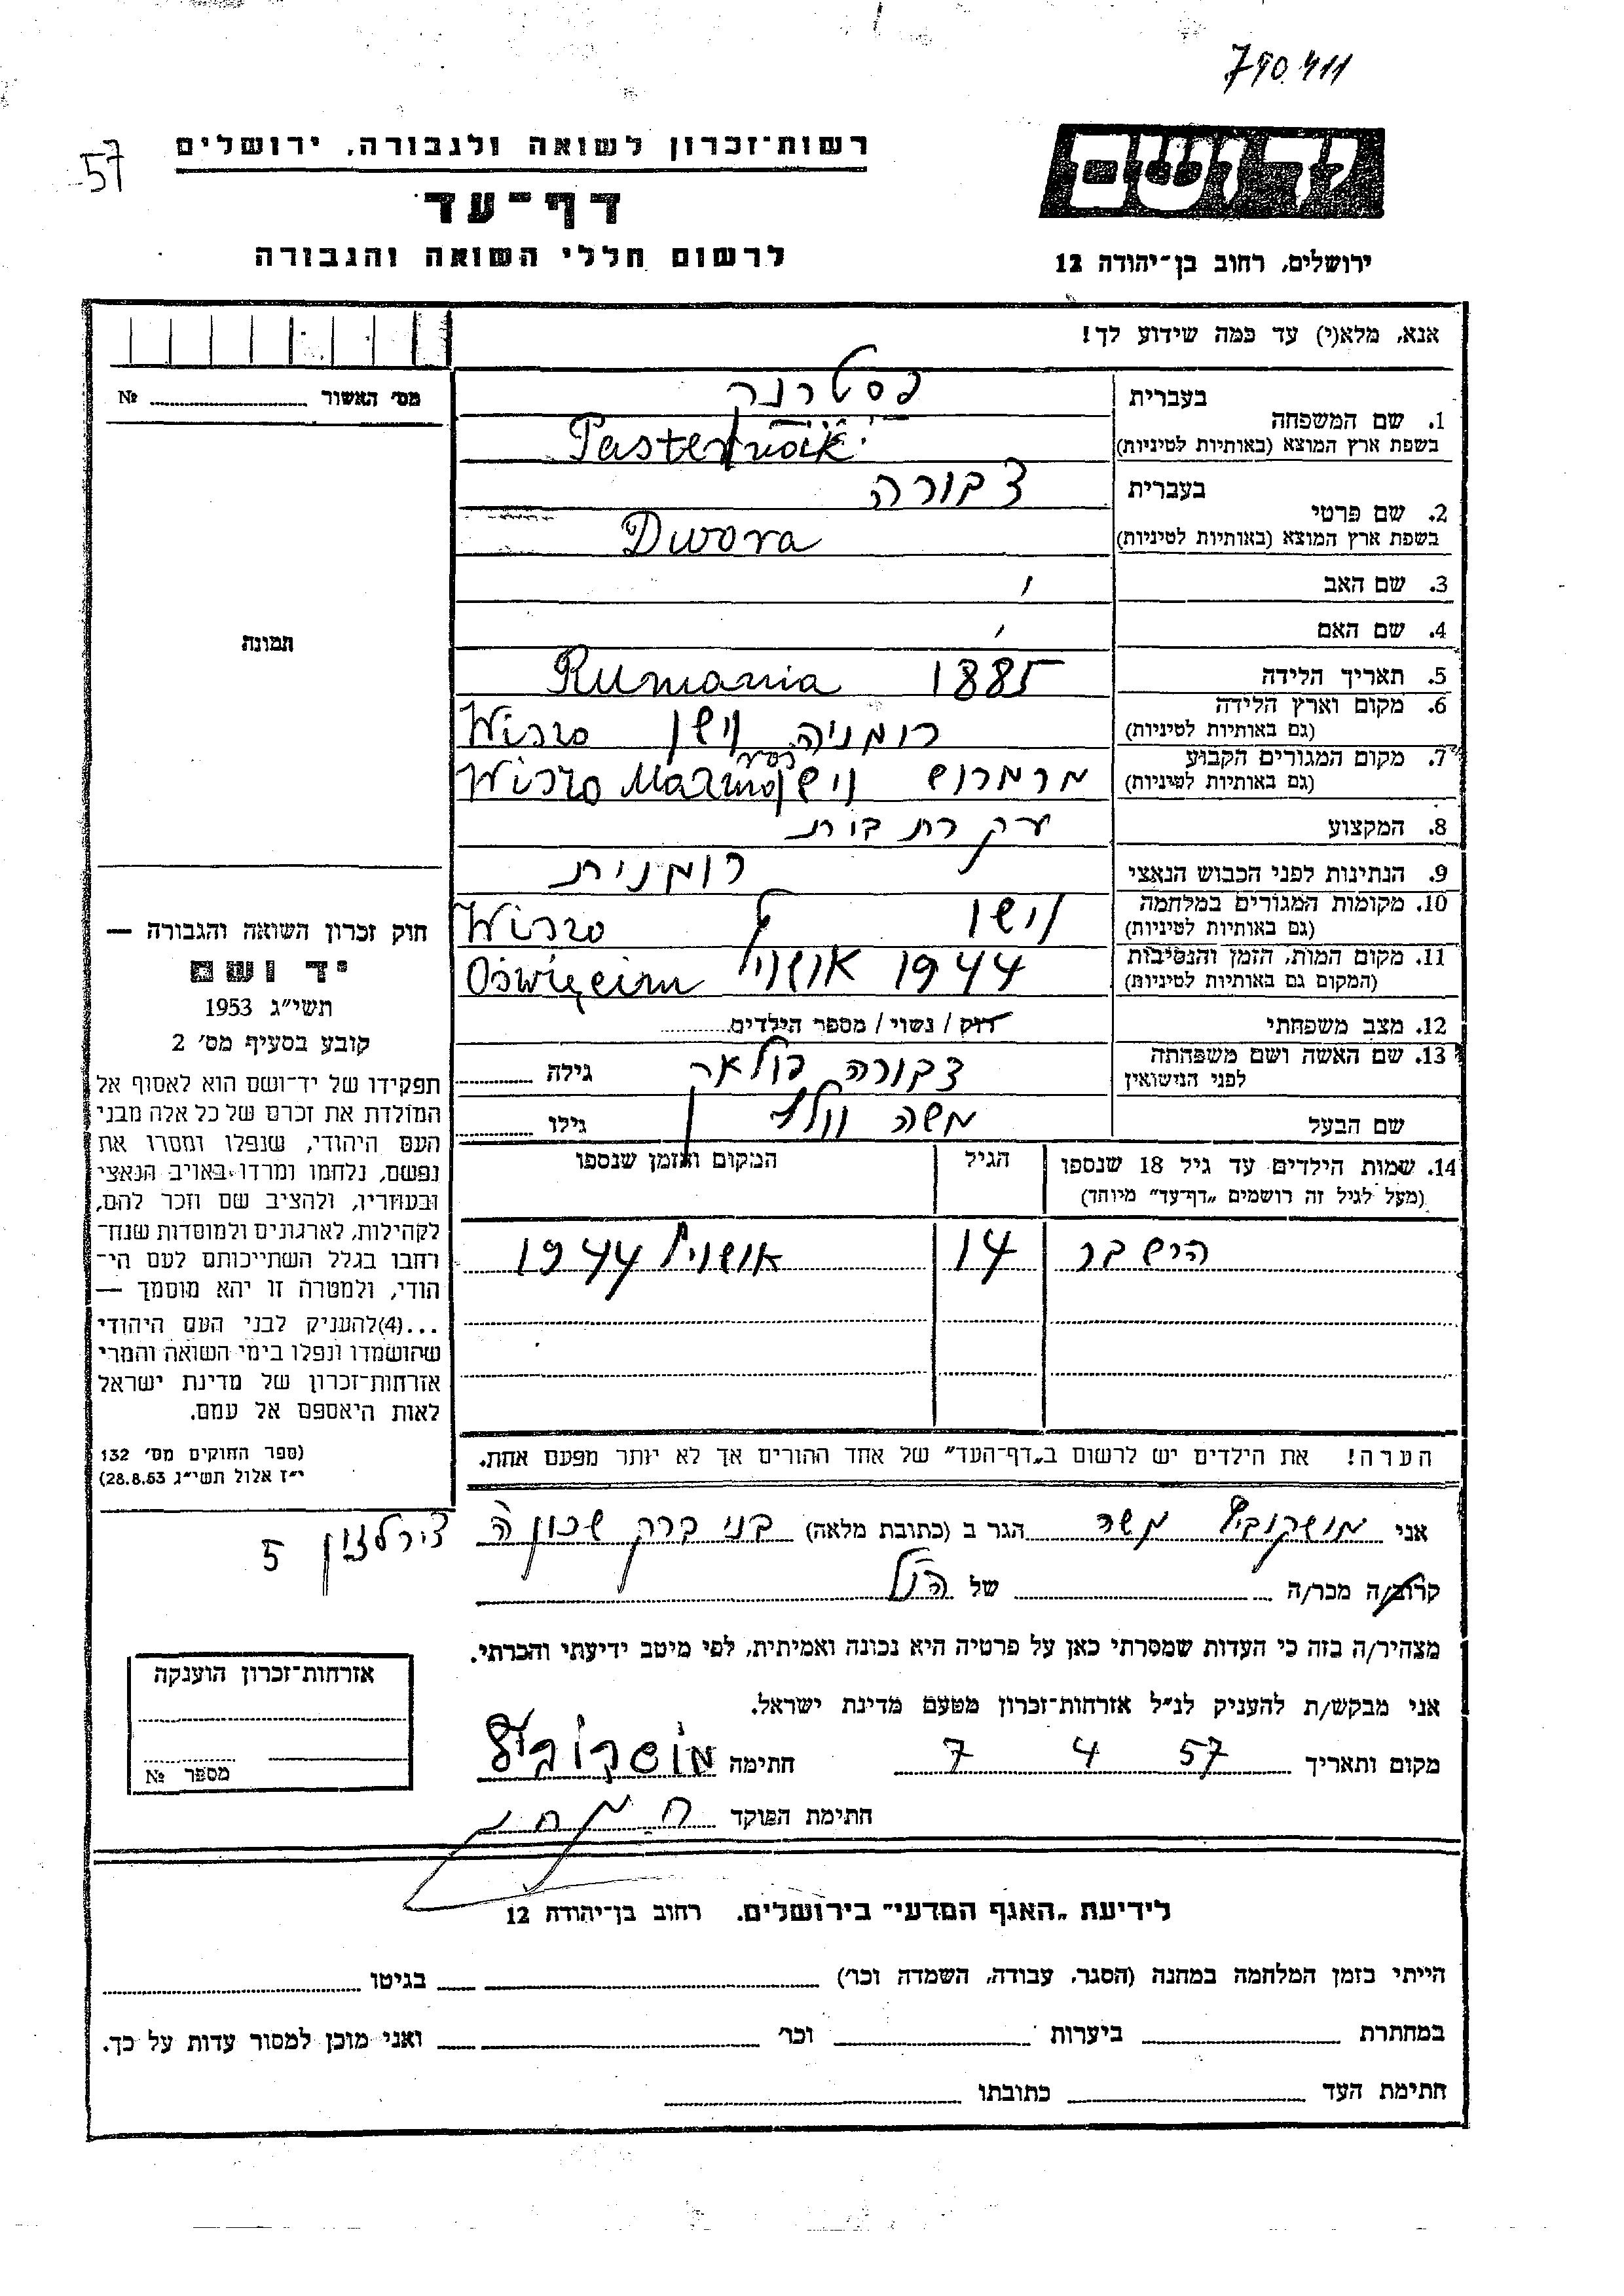 790.411
57
רשות־זכרון לשואה ולגבורה, ירושלים
דף־עד
לרשום חללי השואה והגבורה
יד ושם
ירושלים, רחוב בן־יהודה 12
אנא, מלא(י) עד כמה שידוע לך!
מס' האשור № 
תמונה
1. שם המשפחה
בעברית פסטרנק
בשפת ארץ המוצא (באותיות לטיניות) Pasternak
2. שם פרטי
בעברית דבורה
בשפת ארץ המוצא (באותיות לטיניות) Dwora
3. שם האב
4. שם האם
5. תאריך הלידה 1885 Rumania
6. מקום וארץ הלידה (גם באותיות לטיניות) רומניה Wiszo
7. מקום המגורים הקבוע (גם באותיות לטיניות) מרמרוש Wiszo
8. המקצוע עקרת בית
9. הנתינות לפני הכבוש הנאצי רומנית
10. מקומות המגורים במלחמה (גם באותיות לטיניות) Wiszo
11. מקום המות, הזמן והנסיבות (המקום גם באותיות לטיניות) 1944 Oświęcim
12. מצב משפחתי רוק / נשוי / מספר הילדים
13. שם האשה ושם משפחתה לפני הנישואין דבורה גילה
שם הבעל משה גילו
14. שמות הילדים עד גיל 18 שנספו הגיל המקום והזמן שנספו
(מעל לגיל זה רושמים „דף־עד” מיוחד)
הירש בר 14 אושויץ 1944
הערה! את הילדים יש לרשום ב„דף־העד” של אחד ההורים אך לא יותר מפעם אחת.
חוק זכרון השואה והגבורה —
יד ושם
תשי"ג 1953
קובע בסעיף מס' 2
תפקידו של יד־ושם הוא לאסוף אל
המולדת את זכרם של כל אלה מבני
העם היהודי, שנפלו ומסרו את
נפשם, נלחמו ומרדו באויב הנאצי
ובעוזריו, ולהציב שם וזכר להם,
לקהילות, לארגונים ולמוסדות שנח־
רבו בגלל השתייכותם לעם הי־
הודי, ולמטרה זו יהא מוסמך —
...(4)להעניק לבני העם היהודי
שהושמדו ונפלו בימי השואה והמרי
אזרחות־זכרון של מדינת ישראל
לאות היאספם אל עמם.
(ספר החוקים מס' 132
י"ז אלול תשי"ג 28.8.53)
אני מושקוביץ משה הגר ב (כתובת מלאה) בני ברק שכון ה 5
קרוב/ה מכר/ה של הנ"ל
מצהיר/ה בזה כי העדות שמסרתי כאן על פרטיה היא נכונה ואמיתית, לפי מיטב ידיעתי והכרתי.
אני מבקש/ת להעניק לנ"ל אזרחות־זכרון מטעם מדינת ישראל.
מקום ותאריך 57 4 7 חתימה מושקוביץ
חתימת הפוקד
אזרחות־זכרון הוענקה
מספר №
לידיעת „האגף המדעי” בירושלים, רחוב בן־יהודה 12
הייתי בזמן המלחמה במחנה (הסגר, עבודה, השמדה וכו') בגיטו
במחתרת ביערות וכו' ואני מוכן למסור עדות על כך.
חתימת העד כתובתו